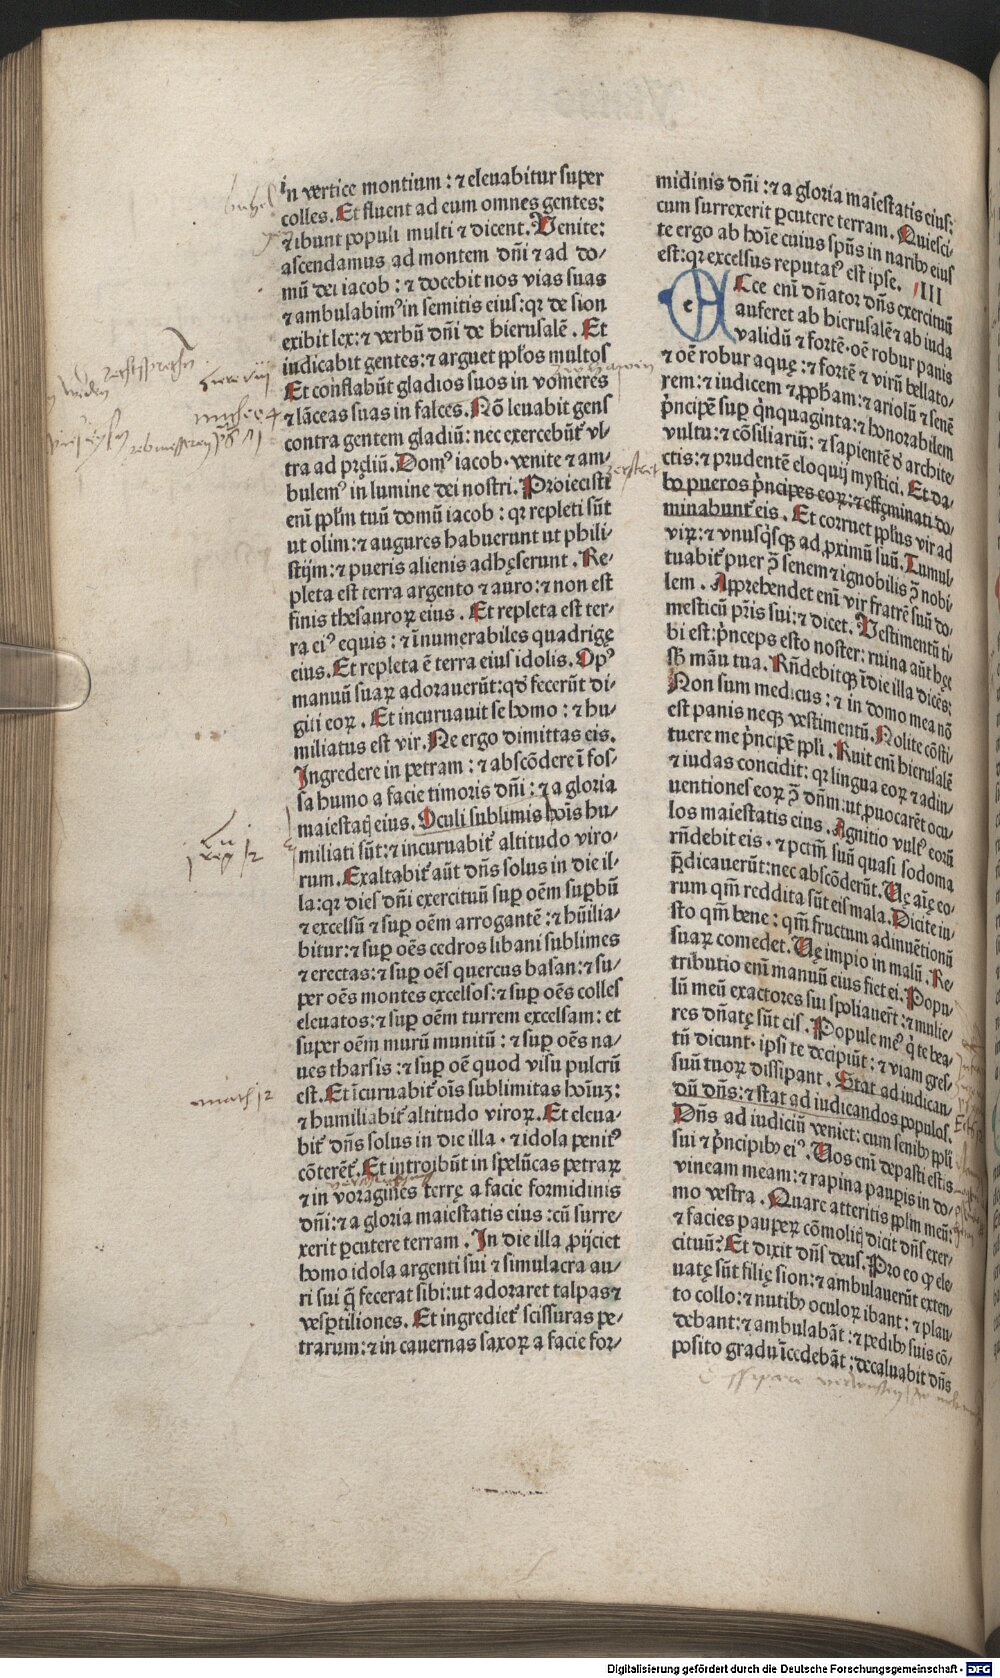 in vertice montium : ⁊ eleuabitur super
colles. Et fluent ad eum omnes gentes:
⁊ ibunt populi multi ⁊ dicent. Venite:
ascendamus ad montem dn̄i ⁊ ad do-
mū dei iacob : ⁊ docebit nos vias suas
⁊ ambulabimꝰ in semitis eius: qꝛ de sion
exibit lex: ⁊ verbū dn̄i de hierusalē . Et
iudicabit gentes: ⁊ arguet pp̄los multos
Et conflabūt gladios suos in vomeres
⁊ lāceas suas in falces. Nō leuabit gens
contra gentem gladiū: nec exercebūt᷑ vl-
tra ad prędiū. Domꝰ iacob · venite ⁊ am-
bulemꝰ in lumine dei nostri. Proiecisti
enī pp̄lm tuū domū iacob : qꝛ repleti sūt
ut olim: ⁊ augures habuerunt ut phili-
stijm: ⁊ pueris alienis adhęserunt . Re-
pleta est terra argento ⁊ auro: ⁊ non est
finis thesauroꝝ eius . Et repleta est ter-
ra eiꝰ equis : ⁊ īnumerabiles quadrigę
eius. Et repleta ē terra eius idolis. Opꝰ
manuū suaꝝ adorauerūt: qd̄ fecerūt di-
giti eoꝝ . Et incuruauit se homo : ⁊ hu-
miliatus est vir. Ne ergo dimittas eis.
Ingredere in petram : ⁊ abscōdere ī fos-
sa humo a facie timoris dn̄i : ⁊ a gloria
maiestatꝭ eius. Oculi sublimis hoīs hu-
miliati sūt: ⁊ incuruabit᷑ altitudo viro-
rum. Exaltabit᷑ aūt dn̄s solus in die il-
la: qꝛ dies dn̄i exercituū suꝑ oēm suꝑbū
⁊ excelsū ⁊ suꝑ oēm arrogantē : ⁊ hūilia-
bitur: ⁊ suꝑ oēs cedros libani sublimes
⁊ erectas: ⁊ suꝑ oēs quercus basan: ⁊ su-
per oēs montes excelsos: ⁊ suꝑ oēs colles
eleuatos: ⁊ suꝑ oēm turrem excelsam: et
super oēm murū munitū : ⁊ suꝑ oēs na-
ues tharsis : ⁊ suꝑ oē quod visu pulcrū
est. Et īcuruabit᷑ oīs sublimitas hoīnꝫ:
⁊ humiliabit᷑ altitudo viroꝝ. Et eleua-
bit᷑ dn̄s solus in die illa · ⁊ idola penitꝰ
cōterēt᷑. Et introibūt in spelūcas petraꝝ
⁊ in voragines terrę a facie formidinis
dn̄i: ⁊ a gloria maiestatis eius : cū surre-
xerit ꝑcutere terram . In die illa ꝓijciet
homo idola argenti sui ⁊ simulacra au-
ri sui q̄ fecerat sibi: ut adoraret talpas ⁊
vesꝑtiliones. Et ingrediet᷑ scissuras pe-
trarum: ⁊ in cauernas saxoꝝ a facie for-
midinis dn̄i : ⁊ a gloria maiestatis eius:
cum surrexerit ꝑcutere terram. Quiesci-
te ergo ab hoīe cuius spūs in naribꝫ eius
est: qꝛ excelsus reputatꝰ est ipse. III
eCce enī dn̄ator dn̄s exercituū
auferet ab hierusalē ⁊ ab iuda
validū ⁊ fortē · oē robur panis
⁊ oē robur aquę: ⁊ fortē ⁊ virū bellato-
rem: ⁊ iudicem ⁊ ꝓph̄am: ⁊ ariolū ⁊ senē
pͥncipē suꝑ qͥnquaginta: ⁊ honorabilem
vultu: ⁊ cōsiliariū: ⁊ sapientē d̓ archite-
ctis: ⁊ prudentē eloquij mystici. Et da-
bo pueros pͥncipes eoꝝ: ⁊ effęminati do-
minabunt᷑ eis. Et corruet pp̄lus vir ad
viꝝ: ⁊ vnusqͥsqꝫ ad ꝓximū suū. Tumul-
tuabit᷑ puer ꝯ̄ senem ⁊ ignobilis ꝯ̄ nobi-
lem . Apprehendet enī vir fratrē suū do-
mesticū pr̄is sui: ⁊ dicet. Vestimentū ti-
bi est: pͥnceps esto noster: ruina aūt hęc
sb̄ māu tua. Rn̄debitqꝫ ī die illa dicēs:
Non sum medicus : ⁊ in domo mea nō
est panis neqꝫ vestimentū. Nolite cōsti-
tuere me pͥncipē pp̄li . Ruit enī hierusalē
⁊ iudas concidit: qꝛ lingua eoꝝ ⁊ adin-
uentiones eoꝝ ꝯ̄ dn̄m: ut ꝓuocarēt ocu-
los maiestatis eius. Agnitio vultꝰ eorū
rn̄debit eis · ⁊ pctm̄ suū quasi sodoma
p̄dicauerūt: nec abscōderūt. Vę aīę eo-
rum qm̄ reddita sūt eis mala. Dicite iu-
sto qm̄ bene : qm̄ fructum adinuētionū
suaꝝ comedet. Vę impio in malū . Re-
tributio enī manuū eius fiet ei. Popu-
lū meū exactores sui spoliauerūt: ⁊ mulie-
res dn̄atę sūt eis. Popule meꝰ qͥ te bea-
tū dicunt · ipsi te decipiūt : ⁊ viam gres-
suū tuoꝝ dissipant . Stat ad iudican-
dū dn̄s: ⁊ stat ad iudicandos populos.
Dn̄s ad iudiciū veniet: cum senibꝫ pp̄li
sui ⁊ pͥncipibꝫ eiꝰ. Vos enī depasti estis
vineam meam: ⁊ rapina pauꝑis in do-
mo vestra . Quare atteritis pp̄lm meū:
⁊ facies pauꝑeꝝ cōmolitꝭ dicit dn̄s exer-
cituū? Et dixit dn̄s deus. Pro eo ꝙ ele-
uatę sūt filię sion: ⁊ ambulauerūt exten-
to collo: ⁊ nutibꝫ oculoꝝ ibant : ⁊ plau-
debant: ⁊ ambulabāt : ⁊ pedibꝫ suis cō-
posito gradu īcedebāt : decaluabit dn̄s
Digitalisierung gefördert durch die Deutsche Forschungsgemeinschaft - DFG